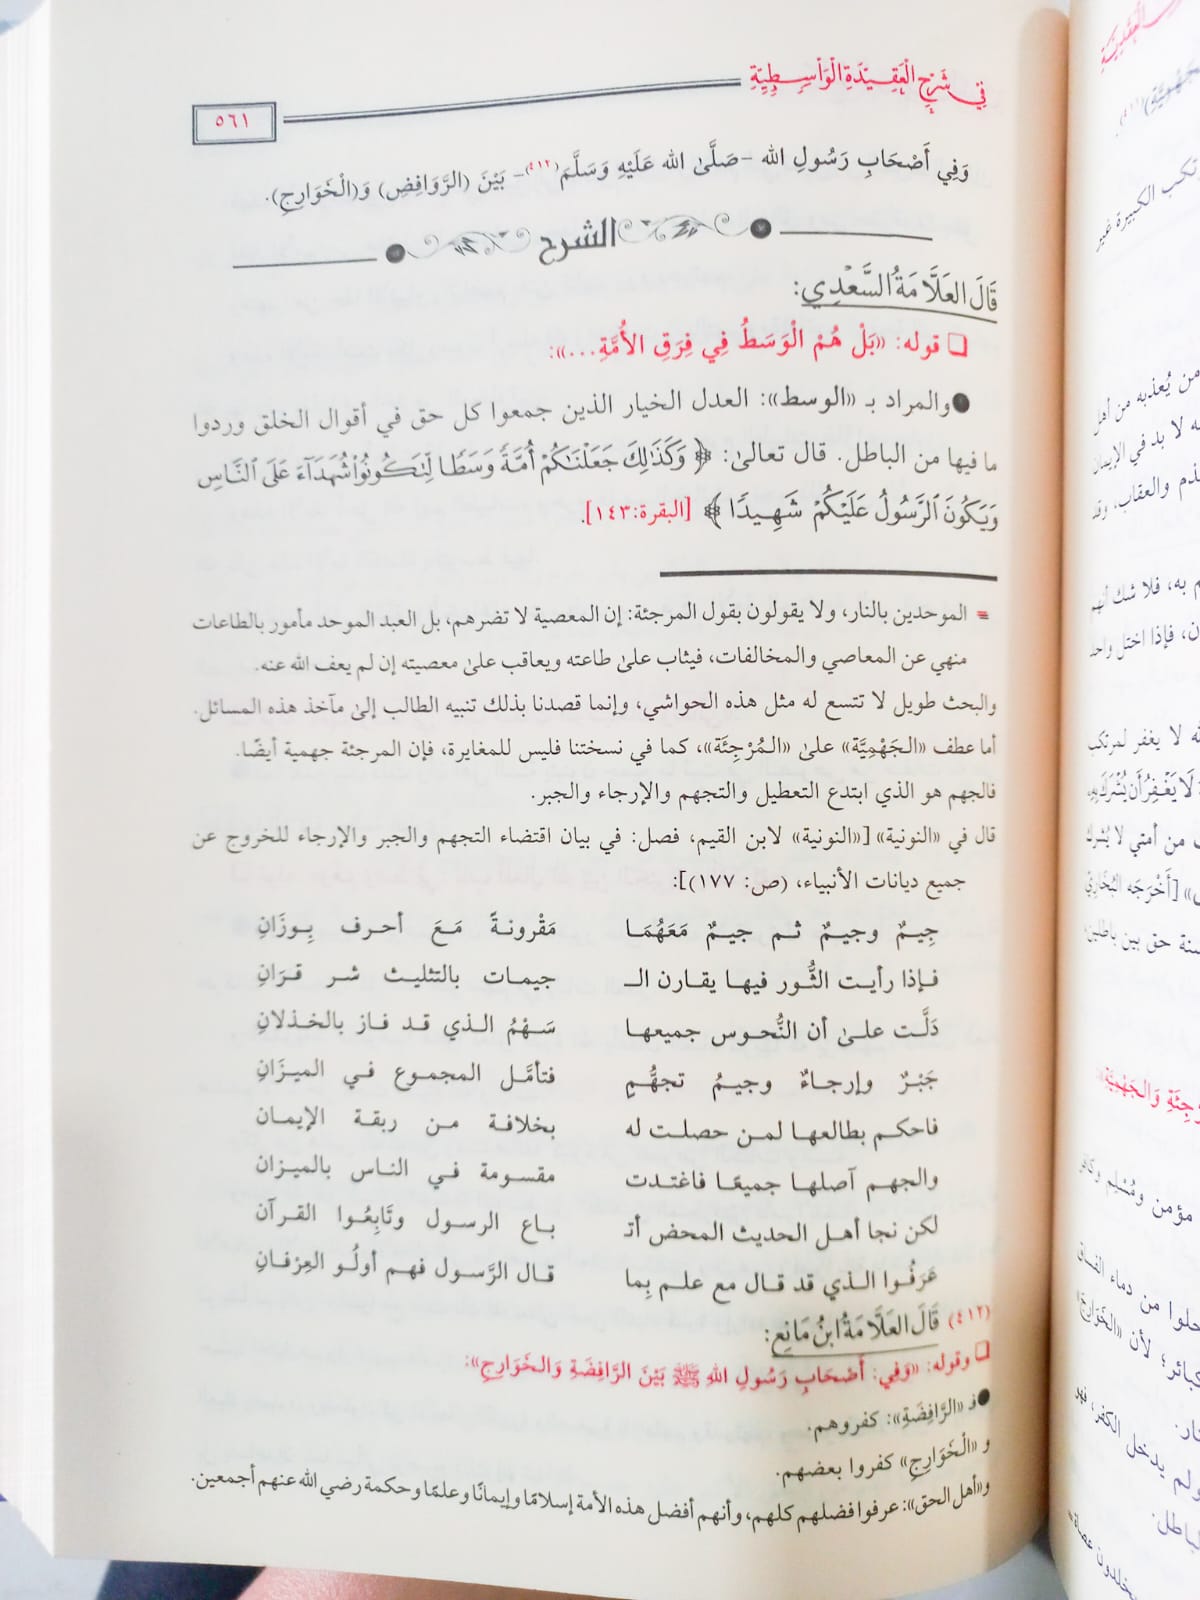 في شَرْحِ الْعَقِيدَةِ الْوَاسِطِيَّةِ
٥٦١
وَفِي أَصْحَابِ رَسُولِ الله -صَلَّىٰ الله عَلَيْهِ وَسَلَّمَ(٤١٢)- بَيْنَ (الرَّوَافِضِ) وَ(الْخَوَارِجِ).
الشرح
قَالَ العَلَّامَةُ السَّعْدِي:
❑ قوله: «بَلْ هُمْ الْوَسَطُ فِي فِرَقِ الأُمَّةِ...»:
●والمراد بـ «الوسط»: العدل الخيار الذين جمعوا كل حق في أقوال الخلق وردوا
ما فيها من الباطل. قال تعالىٰ: ﴿ وَكَذَٰلِكَ جَعَلْنَٰكُمْ أُمَّةً وَسَطًا لِّتَكُونُوا۟ شُهَدَآءَ عَلَى ٱلنَّاسِ
وَيَكُونَ ٱلرَّسُولُ عَلَيْكُمْ شَهِيدًا ﴾ [البقرة:١٤٣].
= الموحدين بالنار، ولا يقولون بقول المرجئة: إن المعصية لا تضرهم، بل العبد الموحد مأمور بالطاعات
منهي عن المعاصي والمخالفات، فيثاب علىٰ طاعته ويعاقب علىٰ معصيته إن لم يعف الله عنه.
والبحث طويل لا تتسع له مثل هذه الحواشي، وإنما قصدنا بذلك تنبيه الطالب إلىٰ مآخذ هذه المسائل.
أما عطف «الجَهْمِيَّة» علىٰ «المُرْجِئَة»، كما في نسختنا فليس للمغايرة، فإن المرجئة جهمية أيضًا.
فالجهم هو الذي ابتدع التعطيل والتجهم والإرجاء والجبر.
قال في «النونية» [«النونية» لابن القيم، فصل: في بيان اقتضاء التجهم والجبر والإرجاء للخروج عن
جميع ديانات الأنبياء، (ص: ١٧٧)]:
جِيمٌ وجيمٌ ثم جيمٌ مَعَهُمَا مَقْرونةً مَعَ أحرف بِوزَانِ
فإذا رأيت الثَّور فيها يقارن الـ جيمات بالتثليث شر قرَانِ
دَلَّت علىٰ أن النُّحوس جميعها سَهْمُ الذي قد فاز بالخذلانِ
جَبْرٌ وإرجاءٌ وجيمُ تجهُّمٍ فتأمَّل المجموع في الميزَانِ
فاحكم بطالعها لمن حصلت له بخلافة من ربقة الإيمان
والجهم آصلها جميعًا فاغتدت مقسومة في الناس بالميزان
لكن نجا أهل الحديث المحض أتـ باع الرسول وتَابِعُوا القرآن
عَرَفُوا الذي قد قال مع علم بِما قال الرَّسول فهم أولُو العِرْفانِ
(٤١٢) قَالَ العَلَّامَةُ ابنُ مَانِع:
❑ وقوله: «وَفِي: أَصْحَابِ رَسُولِ اللهِ ﷺ بَيْنَ الرَّافِضَةِ وَالخَوَارِجِ»:
●فـ «الرَّافِضَةِ»: كفروهم.
و «الْخَوَارِجِ» كفروا بعضهم.
و«أهل الحق»: عرفوا فضلهم كلهم، وأنهم أفضل هذه الأمة إسلامًا وإيمانًا وعلمًا وحكمة رضي الله عنهم أجمعين.